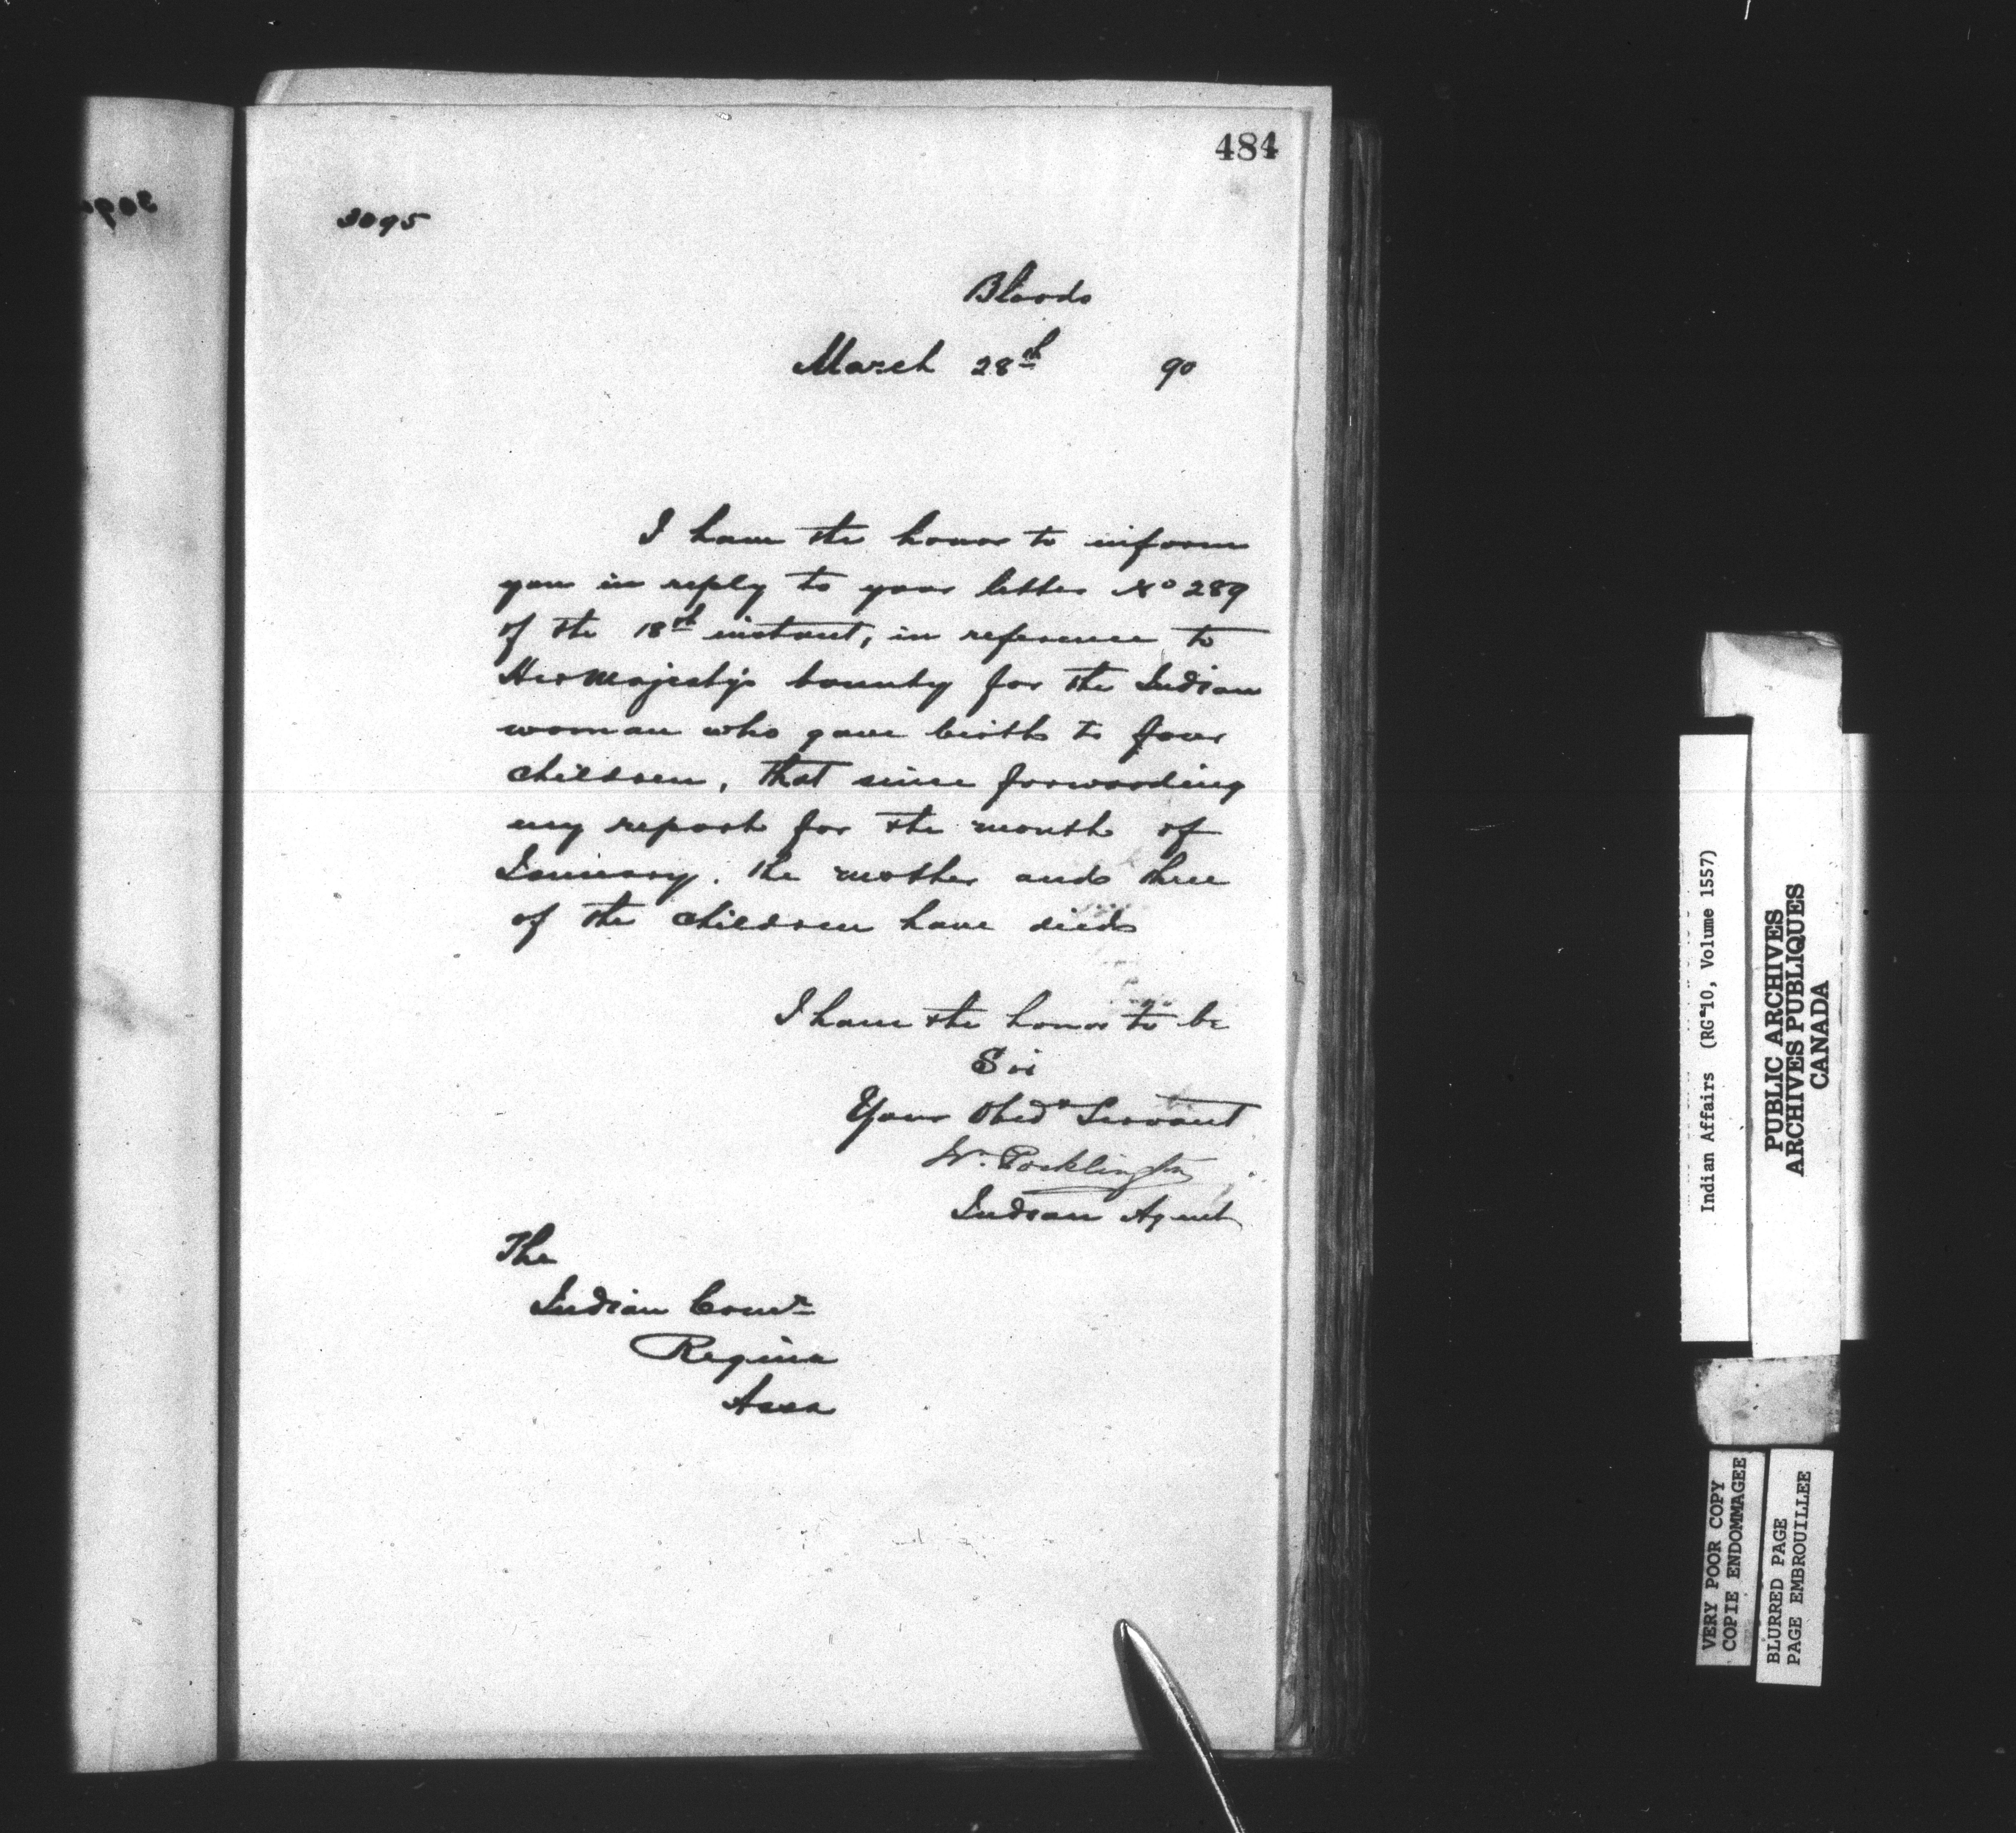 484
3095
Bloods
March 28th 90
I have the honor to inform
you in reply to your letter No 289
of the 18th instant, in reference to
Her Majesty's bounty for the Indian
woman who gave birth to four
children, that since forwarding
my report for the month of
January. the mother and three
of the children have died
I have the honor to be
Sir
Your Obedt Servant
W. Pocklington
Indian Agent
The
Indian Comr
Regina
Assa
Indian Affairs (RG 10, Volume 1557)
PUBLIC ARCHIVES
ARCHIVES PUBLIQUES
CANADA
VERY POOR COPY
COPIE ENDOMMAGEE
BLURRED PAGE
PAGE EMBROUILLEE